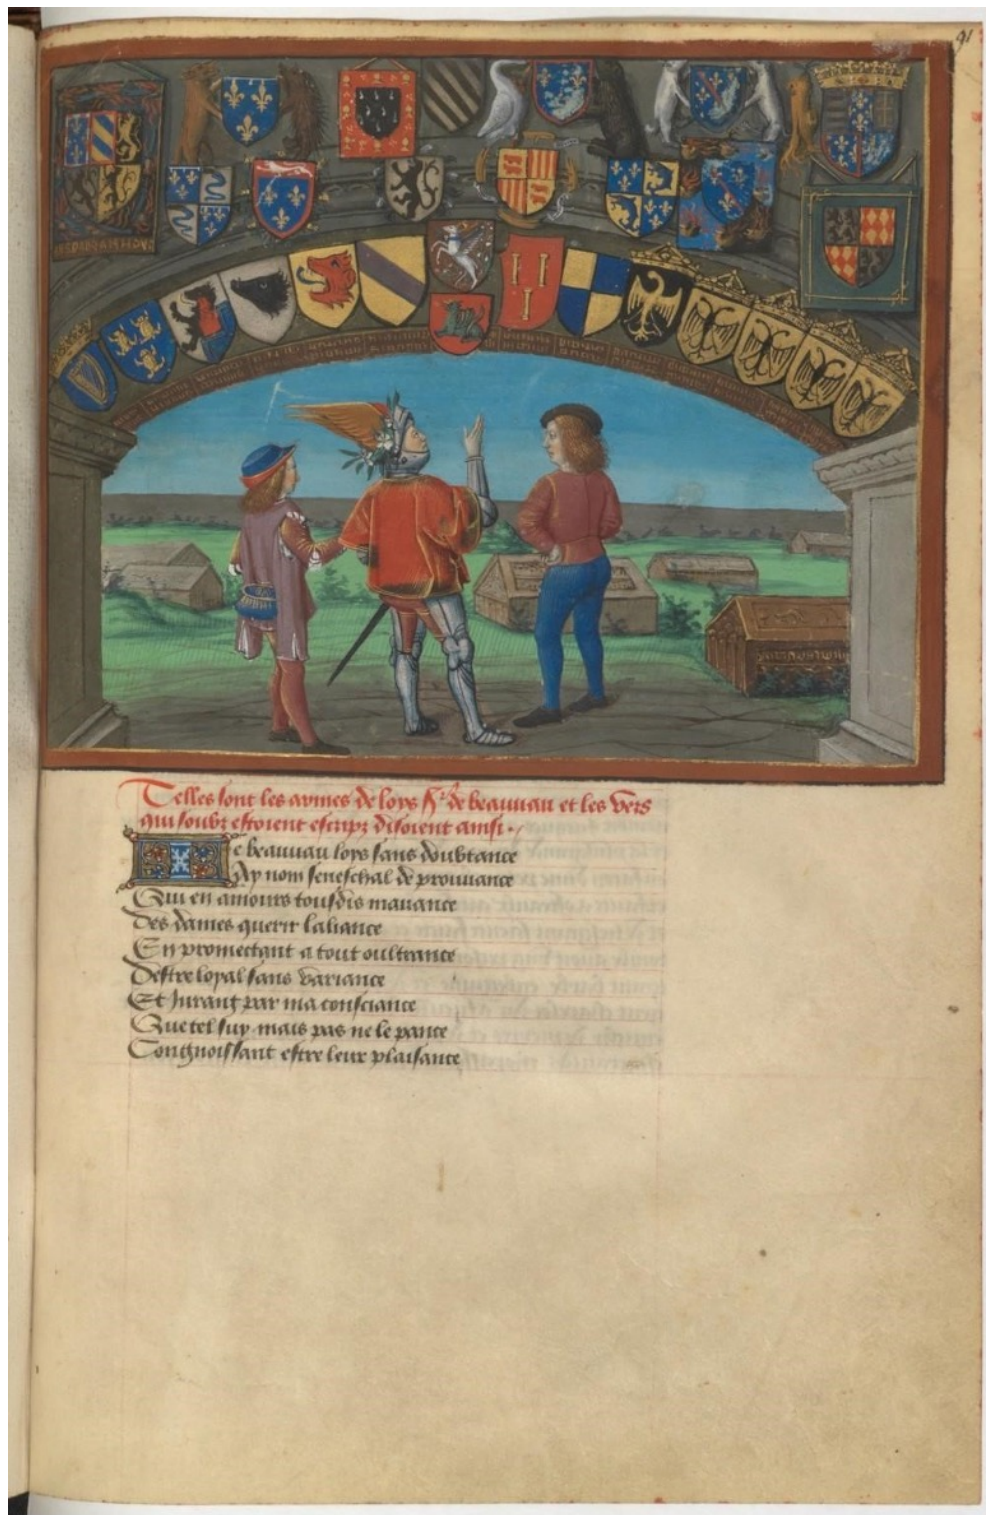 91
Telles sont les armes de loys sr de beauvau et les vers
qui soubz estoient escripz disoient ainsi
De beauvau loys sans doubtance
Ay nom seneschal de prouvance
Qui en amours tousdis mauance
Des dames querir laliance
En promectant a tout oultrance
Destre loyal sans variance
Et Jurant par ma consciance
Que tel suy mais pas ne le pance
Congnoissant estre leur plaisance